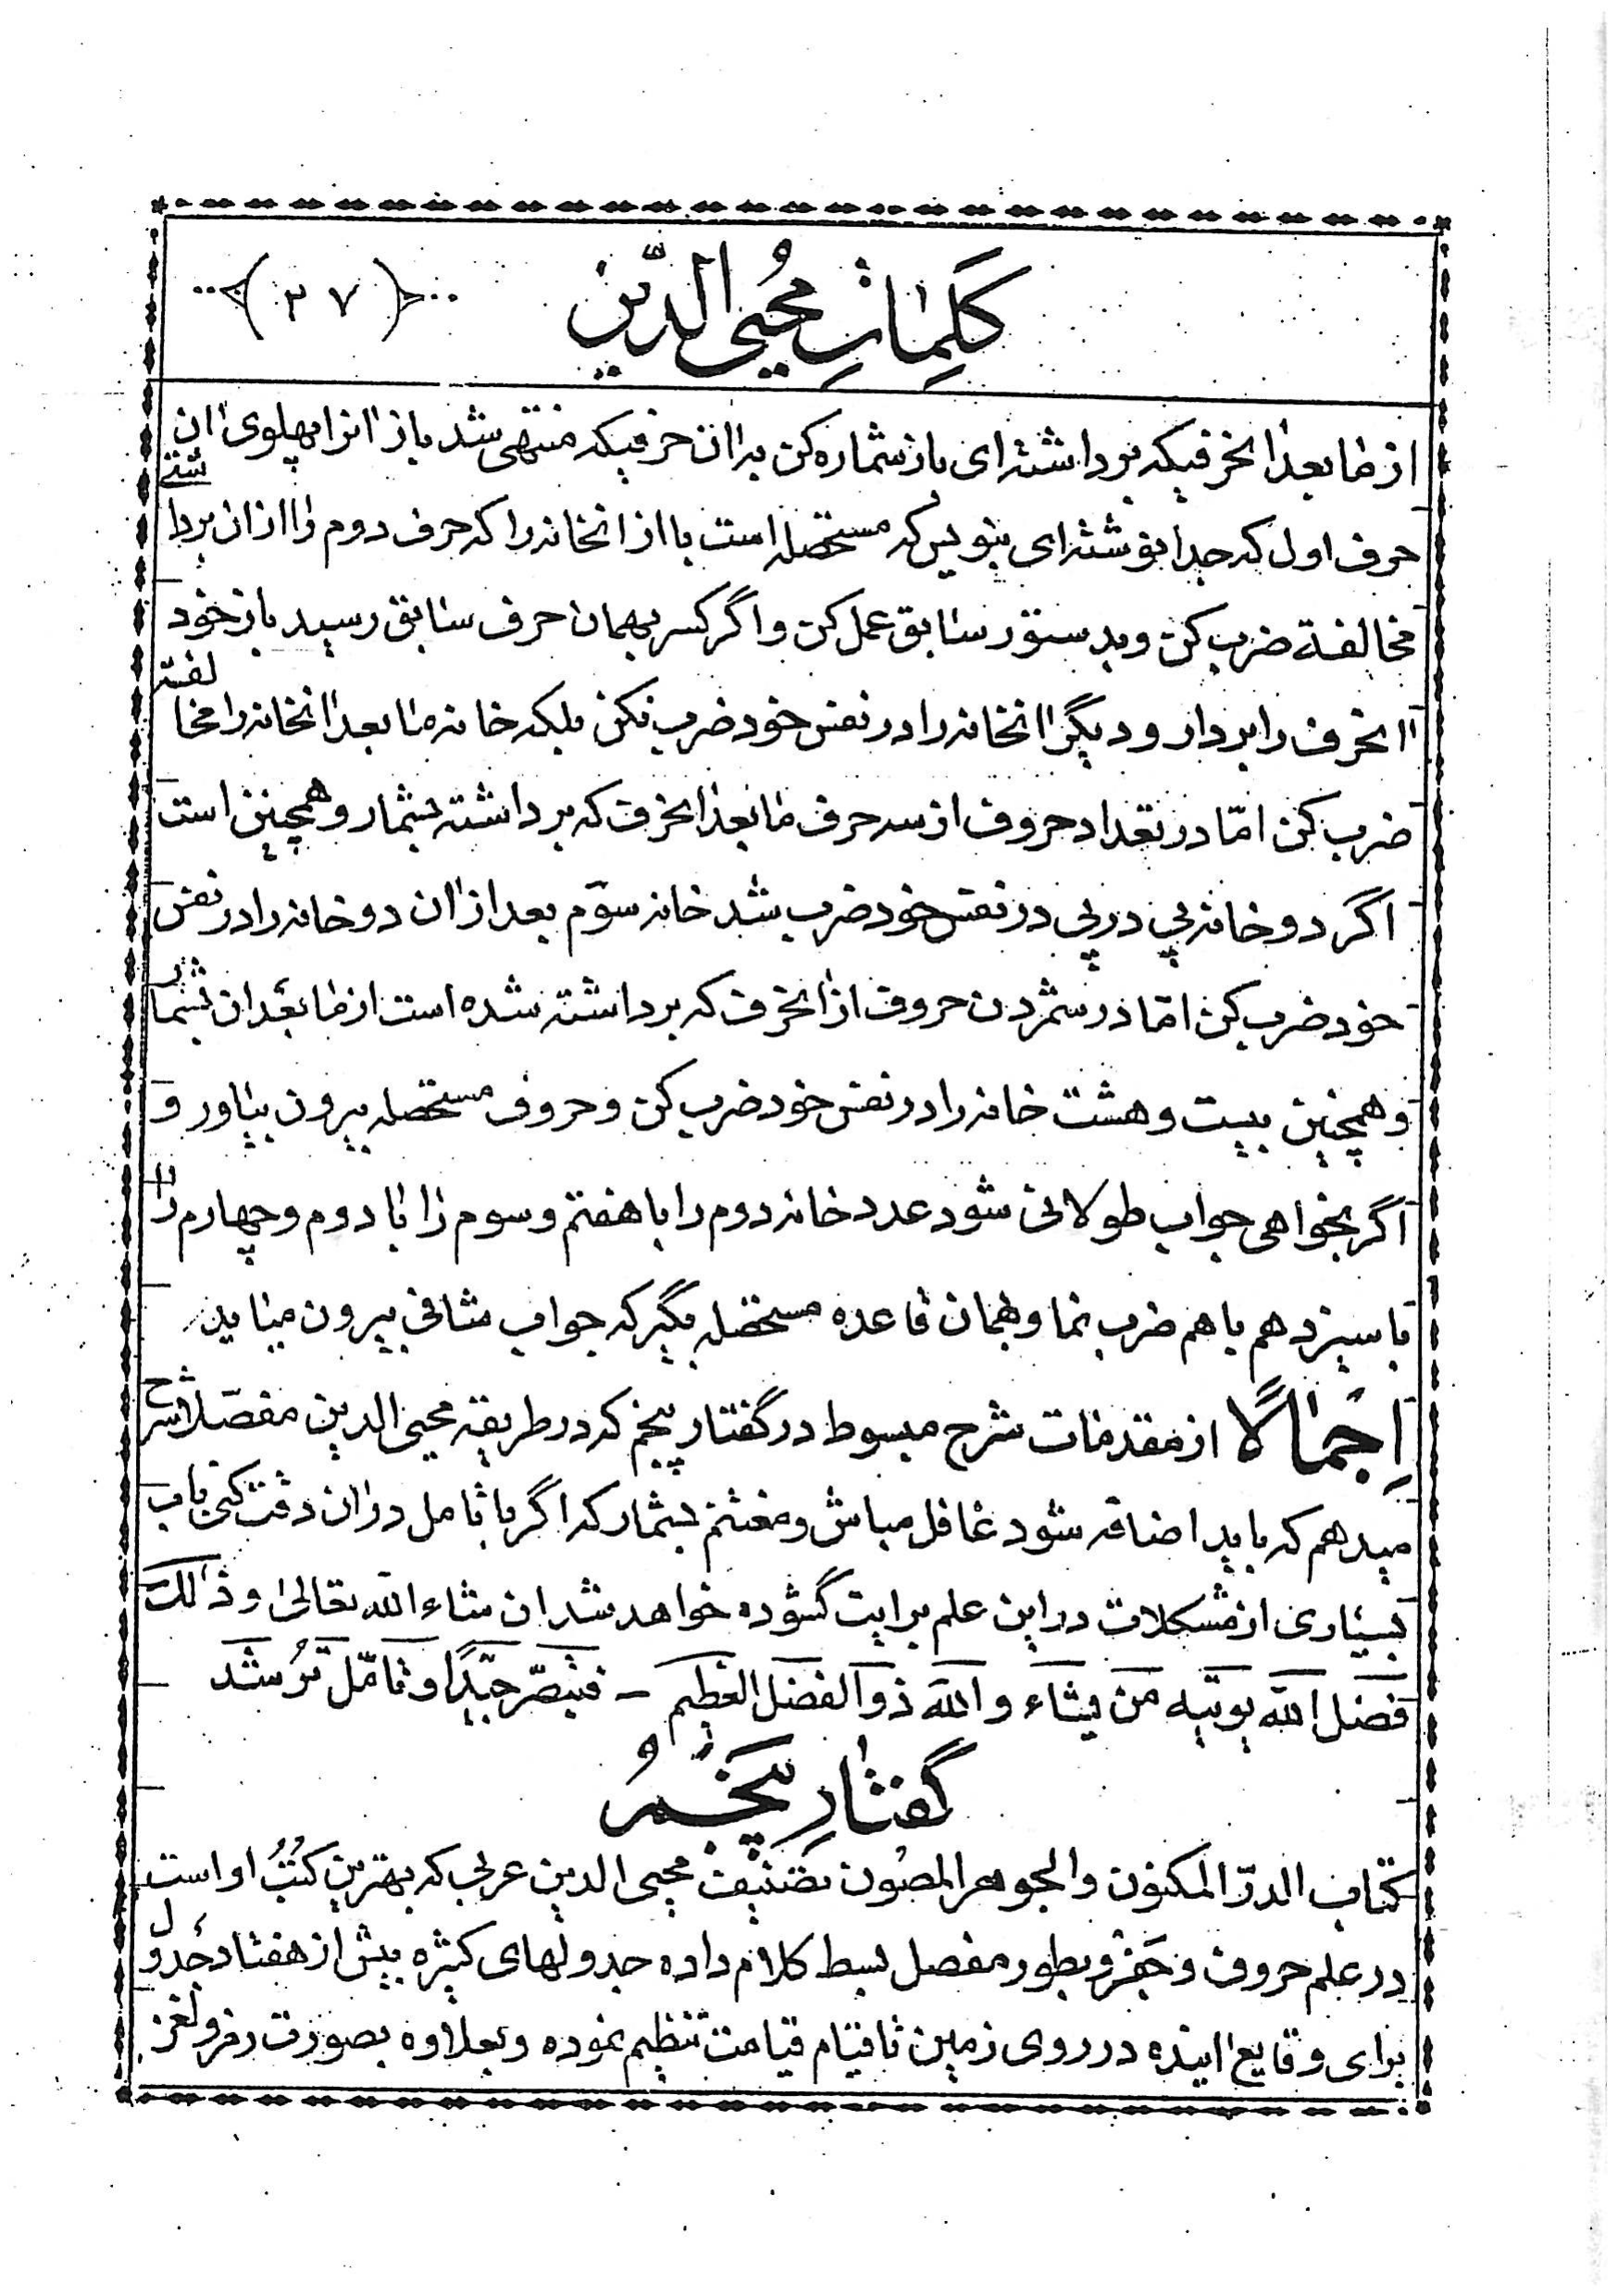 کلمات محیی الدین (۳۷)
از ما بعد انحرفیکه برداشته‌ای باز شماره کن بر ان حرفیکه منتهی شد باز انرا پهلوی ان
حرف اول که جدا نوشته‌ای بنویس که مستحصله است با از انخانه را که حرف دوم را از ان برداشتی
مخالفة ضرب کن و بدستور سابق عمل کن و اگر کسر بهمان حرف سابق رسید باز خود
انحرف را بردار و دیگر انخانه را در نفس خود ضرب نکن بلکه خانه ما بعد انخانه را مخالفته
ضرب کن امّا در تعداد حروف از سه حرف ما بعد انحرف که برداشته بشمار و همچنین است
اگر دو خانه پی در پی در نفس خود ضرب شد خانه سوّم بعد از ان دو خانه را در نفس
خود ضرب کن امّا در شمردن حروف از انحرف که برداشته شده است از ما بعد ان بشمار
و همچنین بیست و هشت خانه را در نفس خود ضرب کن و حروف مستحصله بیرون بیاور و
اگر بخواهی جواب طولانی شود عدد خانه دوم را با هفتم و سوم را با دوم و چهارم را
با سیزدهم با هم ضرب نما و بهمان قاعده مستحصله بگیر که جواب شافی بیرون میاید
اِجمالًا از مقدمات شرح مبسوط در گفتار پنجم که در طریقه محیی الدین مفصّلا شرح
میدهم که باید اضافه شود غافل مباش و مغتنم بشمار که اگر با تامل در ان دقت کنی باب
بسیاری از مشکلات در این علم برایت گشوده خواهد شد ان شاء الله تعالی وذٰلک
فضل الله یوتیه من یشاء والله ذو الفضل العظیم – فتبصّر جیّدًا و تامّل ترشد
گفتارِ پنجمُ
کتاب الدرّ المکنون والجوهر المصون تصنیف محیی الدین عربی که بهترین کُتُب او است
در علم حروف و جَفر و بطور مفصل بسط کلام داده جدولهای کثیره بیش از هفتاد جدول
برای وقایع اینده در روی زمین تا قیام قیامت تنظیم نموده و بعلاوه بصورت رمز و لغز